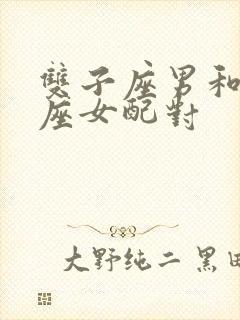 雙子座男和
座女配對
大野纯二 黑田